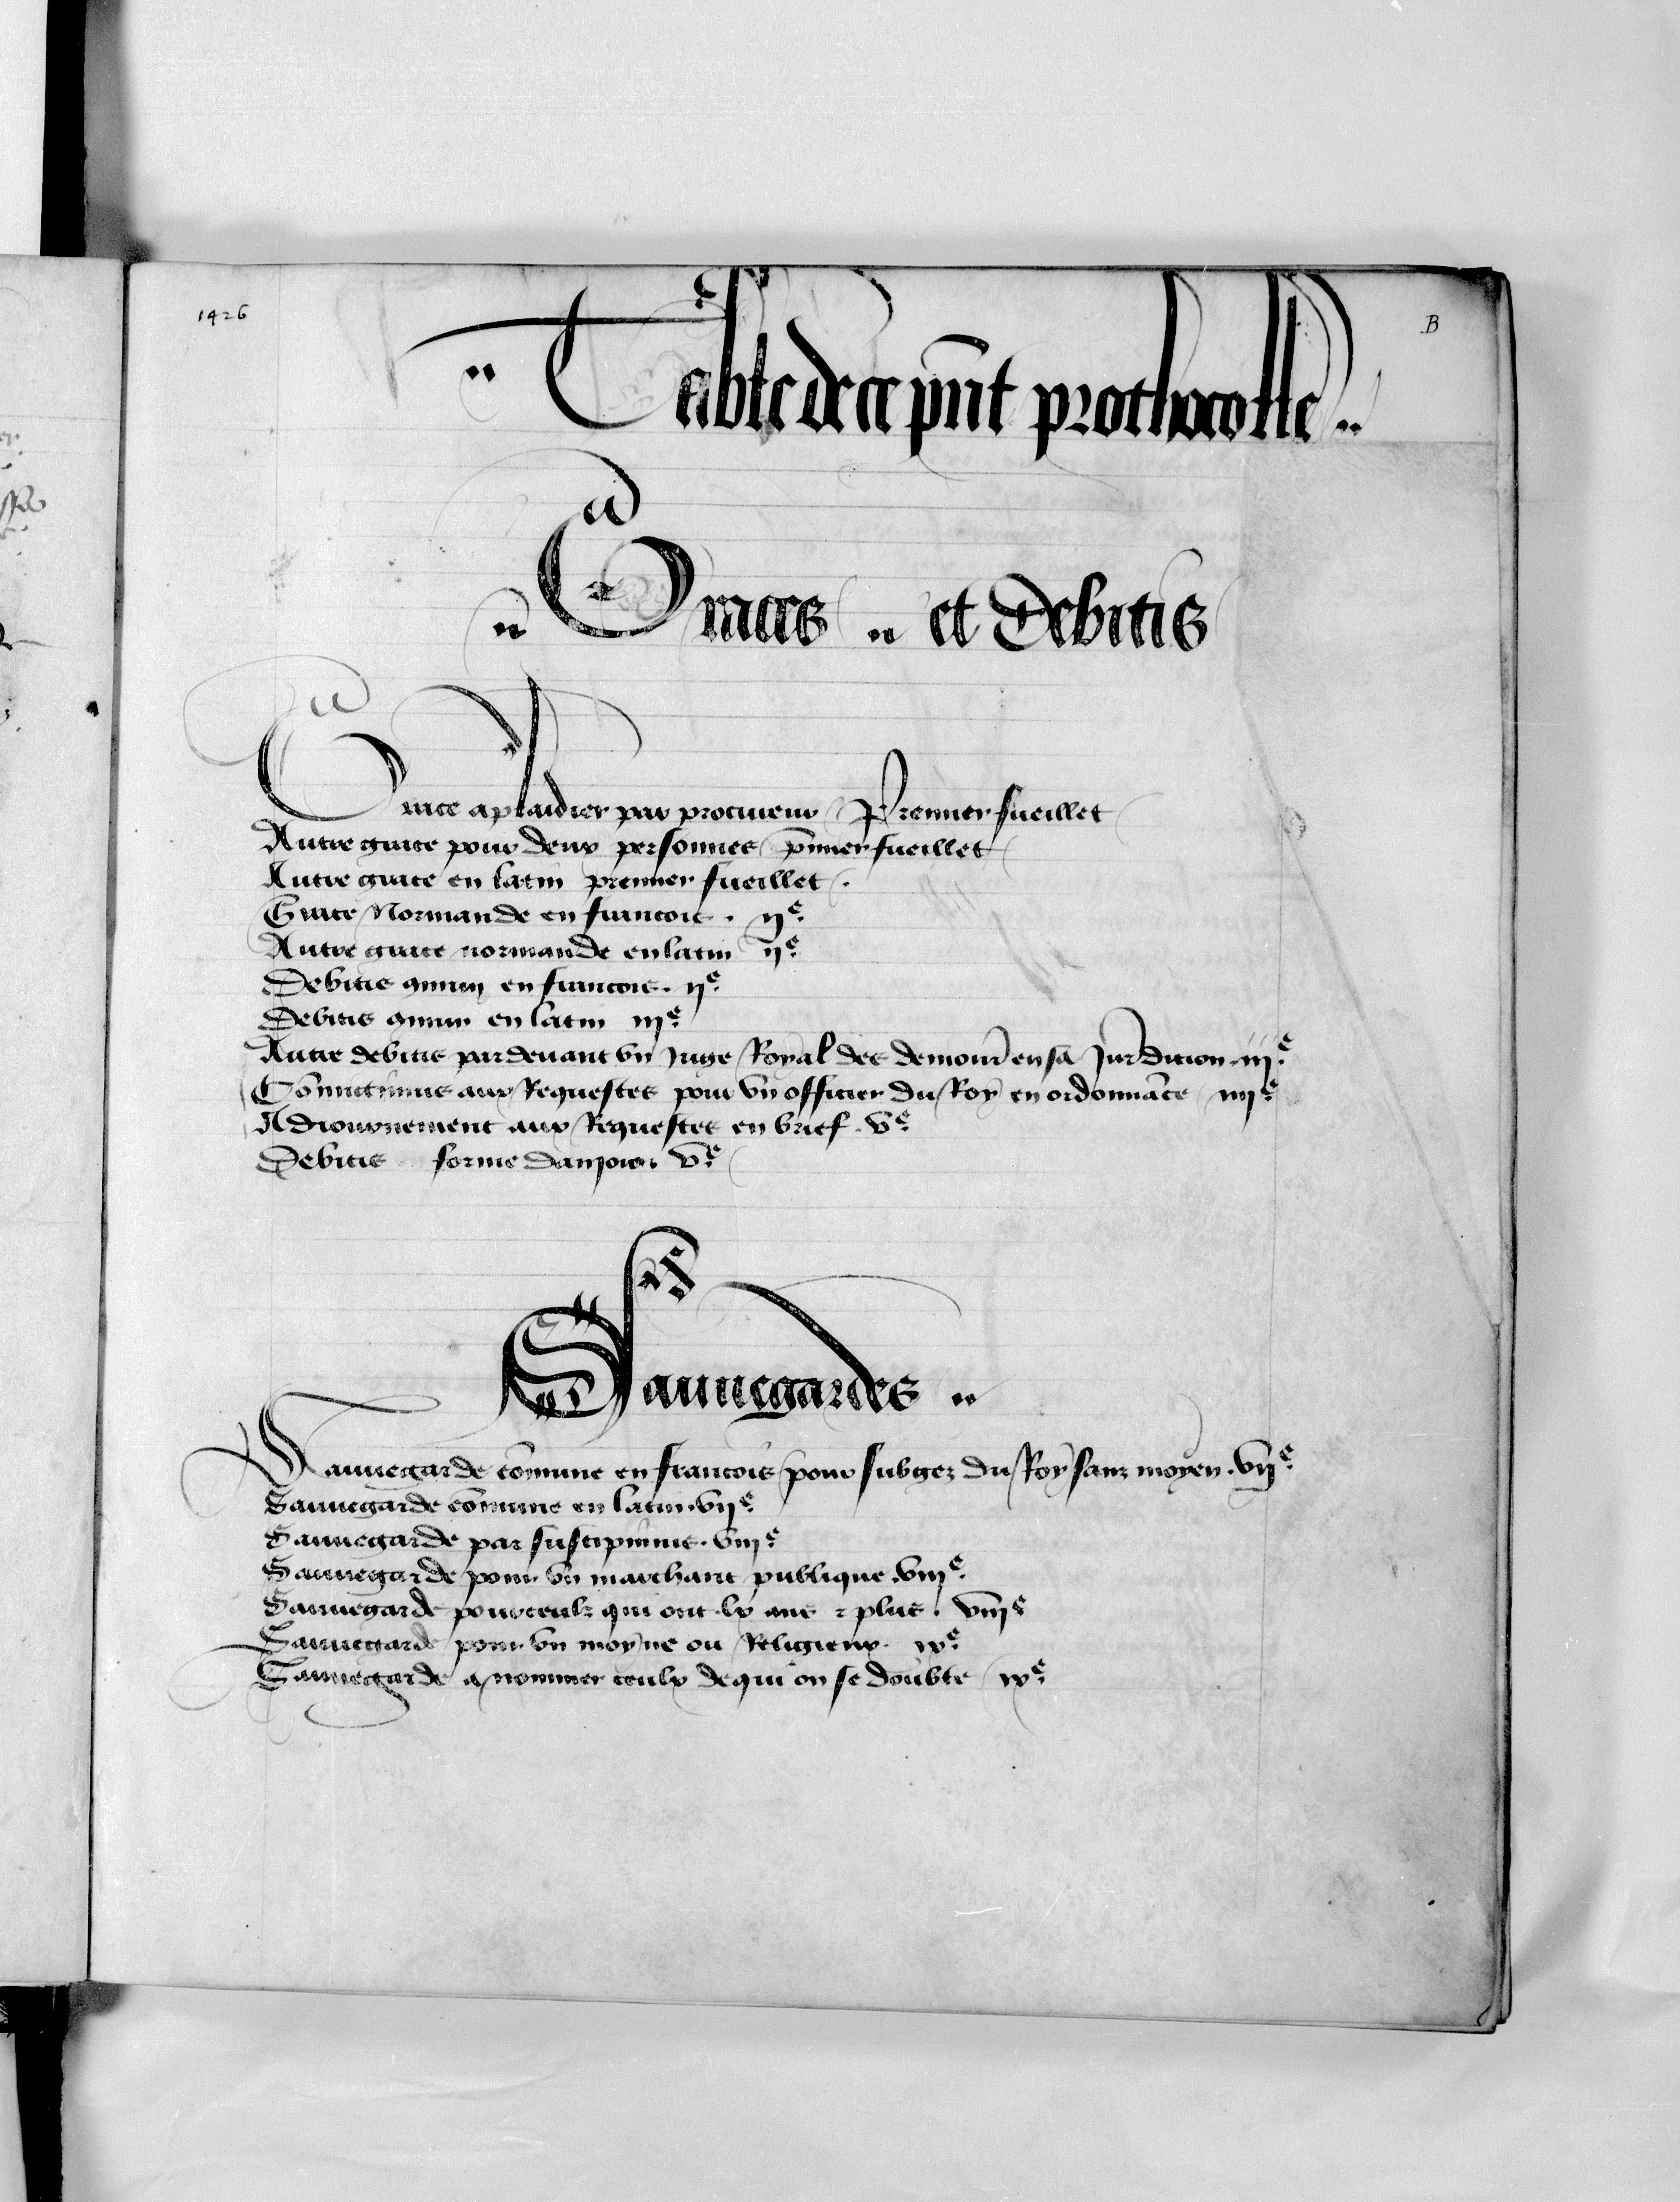 1426
B
Table de ce pnt prothocolle
Graces et Debitis
Grace a plaidier par procureur Premier fueillet
Autre grace pour deux personnes pmier fueillet
Autre grace en latin premier fueillet.
Grace Normande en francois. ijᵉ
Autre grace normande en latin ijᵉ
Debitis quum en francois. ijᵉ
Debitis quum en latin iijᵉ
Autre debitis par devant vn Juge Royal des demour en sa Jurdition iijᵉ
Comictimus aux Requestes pour vn officier du Roy en ordonnāce iiijᵉ
Adiournement aux Requestes en brief. vᵉ
Debitis forme danjou. vᵉ
Sauuegardes
Sauuegarde cōmune en francois pour subgez du Roy sanz moyen. vijᵉ
Sauuegarde cōmune en latin. vijᵉ
Sauuegarde par suscipimus. viijᵉ
Sauuegarde pour vn marchant publique. viijᵉ
Sauuegarde pour ceulx qui ont lx ans ⁊ plus. viijᵉ
Sauuegarde pour vn moyne ou Religieux. ixᵉ
Sauuegarde a nommer ceulx de qui on se doubte ixᵉ